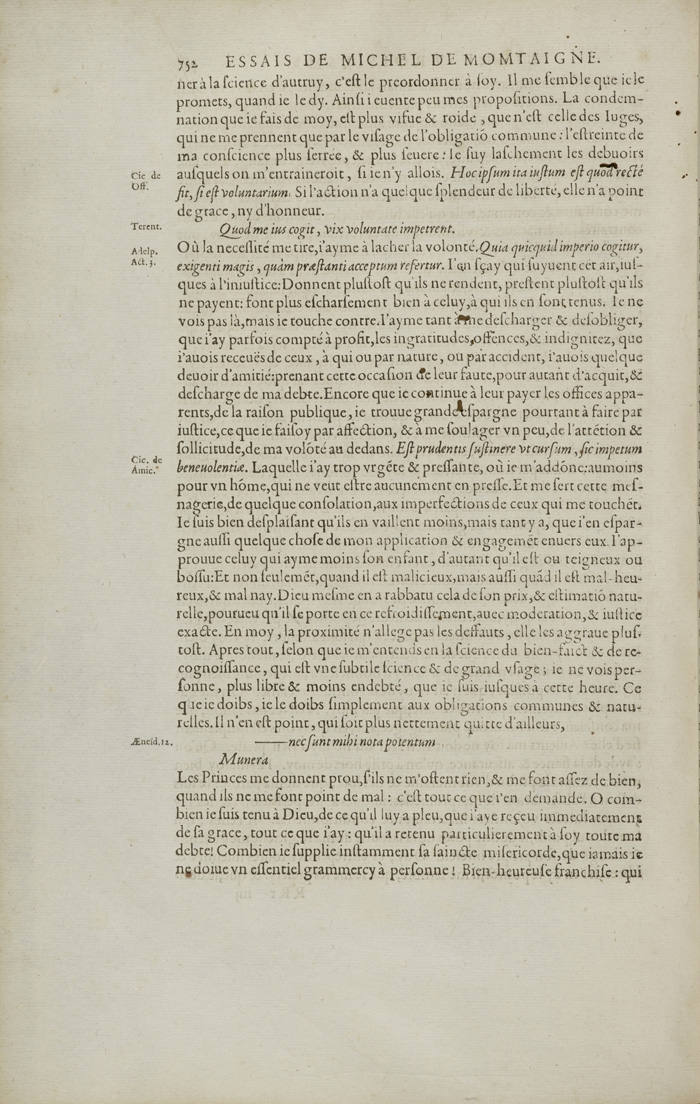 752 ESSAIS DE MICHEL DE MOMTAIGNE.
ner à la ſcience d'autruy, c'eſt le preordonner à ſoy. Il me ſemble que ie le
promets, quand ie le dy. Ainſi i euente peu mes propoſitions. La condem-
nation que ie fais de moy, eſt plus vifue & roide, que n'eſt celle des Iuges,
qui ne me prennent que par le viſage de l'obligatiõ commune : l'eſtreinte de
ma conſcience plus ſerrée, & plus ſeuere : ie ſuy laſchement les debuoirs
Cic. de Off.
auſquels on m'entraineroit, ſi ie n'y allois. Hoc ipſum ita iuſtum eſt quod rectè
fit, ſi eſt voluntarium. Si l'action n'a quelque ſplendeur de liberté, elle n'a point
de grace, ny d'honneur.
Terent.
Quod me ius cogit, vix voluntate impetrent.
Adelp. Act. 3.
Où la neceſſité me tire, i'ayme à lacher la volonté. Quia quicquid imperio cogitur,
exigenti magis, quàm præſtanti acceptum refertur. I'en ſçay qui ſuyuent cet air, iuſ-
ques à l'iniuſtice: Donnent pluſtoſt qu'ils ne rendent, preſtent pluſtoſt qu'ils
ne payent: font plus eſcharſement bien à celuy, à qui ils en ſont tenus. Ie ne
vois pas là, mais ie touche contre. I'ayme tant à me deſcharger & deſobliger,
que i'ay parfois compté à profit, les ingratitudes, offences, & indignitez, que
i'auois receuës de ceux, à qui ou par nature, ou par accident, i'auois quelque
deuoir d'amitié: prenant cette occaſion de leur faute, pour autant d'acquit, &
deſcharge de ma debte. Encore que ie continue à leur payer les offices appa-
rents, de la raiſon publique, ie trouue grande eſpargne pourtant à faire par
iuſtice, ce que ie faiſoy par affection, & à me ſoulager vn peu, de l'attẽtion &
ſollicitude, de ma volõté au dedans. Eſt prudentis ſuſtinere vt curſum, ſic impetum
Cic. de Amic.
beneuolentiæ. Laquelle i'ay trop vrgẽte & preſſante, où ie m'addõne: aumoins
pour vn hõme, qui ne veut eſtre aucunement en preſſe. Et me ſert cette meſ-
nagerie, de quelque conſolation, aux imperfections de ceux qui me touchẽt.
Ie ſuis bien deſplaiſant qu'ils en vaillent moins, mais tant y a, que i'en eſpar-
gne auſſi quelque choſe de mon application & engagemẽt enuers eux. I'ap-
prouue celuy qui ayme moins ſon enfant, d'autant qu'il eſt ou teigneux ou
boſſu: Et non ſeulemẽt, quand il eſt malicieux, mais auſſi quãd il eſt mal-heu-
reux, & mal nay. Dieu meſme en a rabbatu cela de ſon prix, & eſtimatiõ natu-
relle, pourueu qu'il ſe porte en ce refroidiſſement, auec moderation, & iuſtice
exacte. En moy, la proximité n'allege pas les deffauts, elle les aggraue pluſ-
toſt. Apres tout, ſelon que ie m'entends en la ſcience du bien-faict & de re-
cognoiſſance, qui eſt vne ſubtile ſcience & de grand vſage; ie ne vois per-
ſonne, plus libre & moins endebté, que ie ſuis iuſques à cette heure. Ce
que ie doibs, ie le doibs ſimplement aux obligations communes & natu-
relles. Il n'en eſt point, qui ſoit plus nettement quitte d'ailleurs,
Æneid. 12.
——nec ſunt mihi nota potentum
Munera
Les Princes me donnent prou, ſ'ils ne m'oſtent rien, & me font aſſez de bien,
quand ils ne me font point de mal : c'eſt tout ce que i'en demande. O com-
bien ie ſuis tenu à Dieu, de ce qu'il luy a pleu, que i'aye reçeu immediatement
de ſa grace, tout ce que i'ay : qu'il a retenu particulierement à ſoy toute ma
debte! Combien ie ſupplie inſtamment ſa ſaincte miſericorde, que iamais ie
ne doiue vn eſſentiel grammercy à perſonne! Bien-heureuſe franchiſe : qui